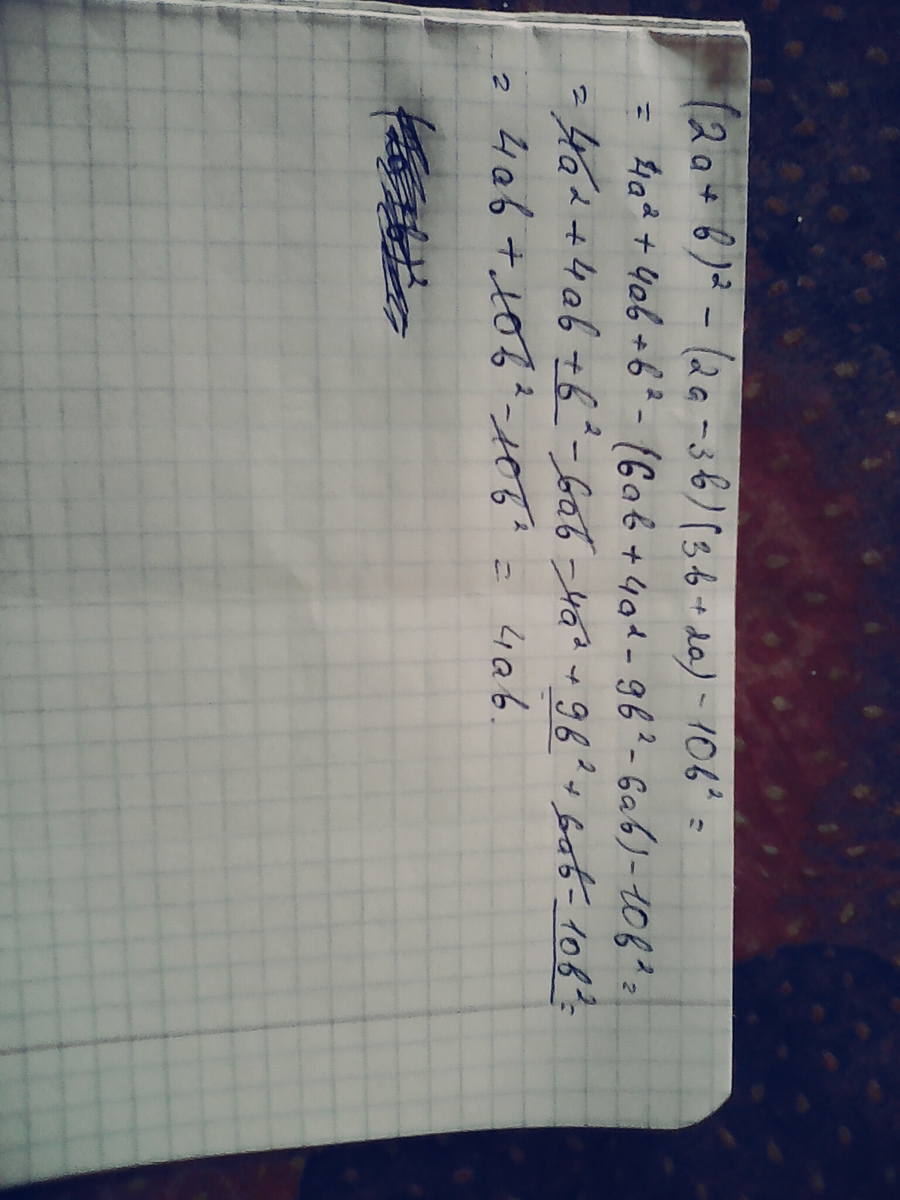 (2a + b)² - (2a - 3b)(3b + 2a) - 10b² =
= 4a² + 4ab + b² - (6ab + 4a² - 9b² - 6ab) - 10b² =
= 4a² + 4ab + b² - 6ab - 4a² + 9b² + 6ab - 10b² =
= 4ab + 10b² - 10b² = 4ab.